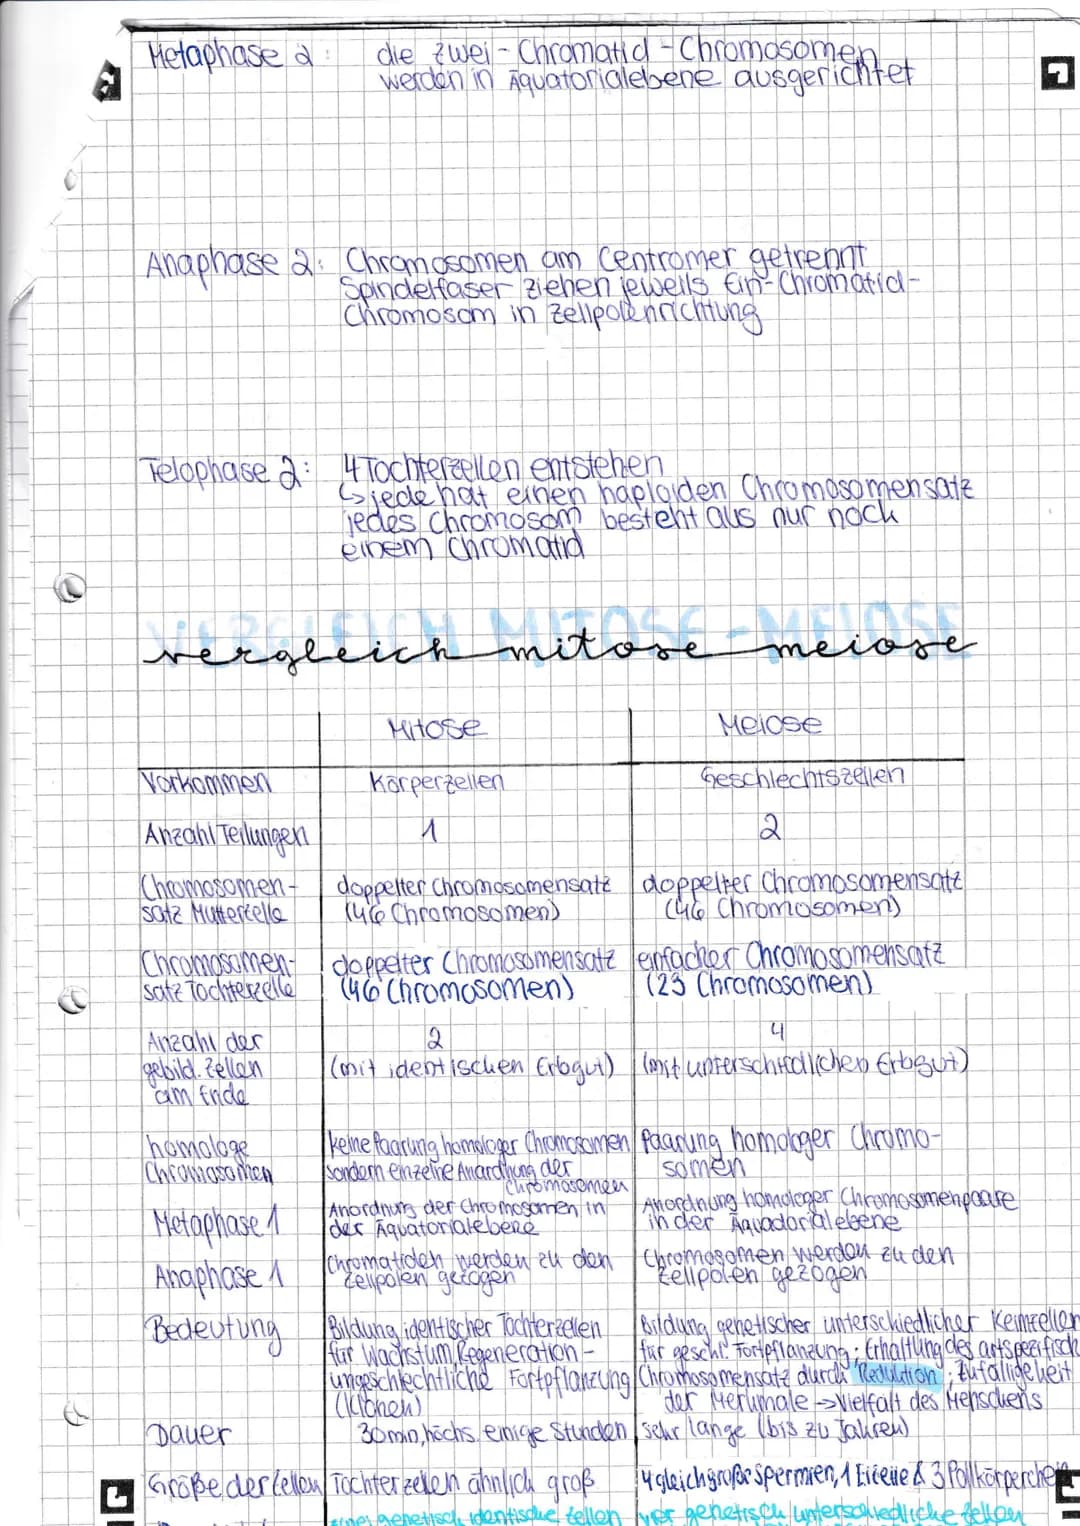 Metaphase 2: die zwei-Chromatid-Chromosomen
werden in Äquatorialebene ausgerichtet
Anaphase 2: Chromosomen am Centromer getrennt
Spindelfaser ziehen jeweils Ein-Chromatid-
Chromosom in Zellpolenrichtung
Telophase 2: 4 Tochterzellen entstehen
↳ jede hat einen haploiden Chromosomensatz
jedes Chromosom besteht aus nur noch
einem Chromatid
VERGLEICH MITOSE-MEIOSE
vergleich mitose-meiose
Mitose Meiose
Vorkommen Körperzellen Geschlechtszellen
Anzahl Teilungen 1 2
Chromosomen- doppelter Chromosomensatz doppelter Chromosomensatz
satz Mutterzelle (46 Chromosomen) (46 Chromosomen)
Chromosomen- doppelter Chromosomensatz einfacher Chromosomensatz
satz Tochterzelle (46 Chromosomen) (23 Chromosomen)
Anzahl der 2 4
gebild. Zellen (mit identischen Erbgut) (mit unterschiedlichen Erbgut)
am Ende
homologe keine Paarung homologer Chromosomen Paarung homologer Chromo-
Chromosomen sondern einzelne Anordnung der somen
Chromosomen
Metaphase 1 Anordnung der Chromosomen in Anordnung homologer Chromosomenpaare
der Äquatorialebene in der Äquadorialebene
Anaphase 1 Chromatiden werden zu den Chromosomen werden zu den
Zellpolen gezogen Zellpolen gezogen
Bedeutung Bildung identischer Tochterzellen Bildung genetischer unterschiedlicher Keimzellen
für Wachstum, Regeneration- für geschl. Fortpflanzung; Erhaltung des artspezifisch
ungeschlechtliche Fortpflanzung Chromosomensatz durch Reduktion; Zufälligkeit
(Klonen) der Merkmale → Vielfalt des Menschens
Dauer 30min, höchs. einige Stunden sehr lange (bis zu Jahren)
Größe der Zellen Tochterzellen ähnlich groß 4 gleichgroße Spermien, 1 Eizelle & 3 Polkörperchen
genetisch identische Zellen vier genetisch unterschiedliche Zellen